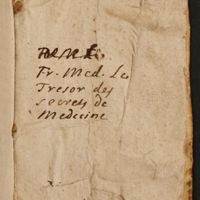 Fr. Med. Le
Tresor des
secrets de
Medecine